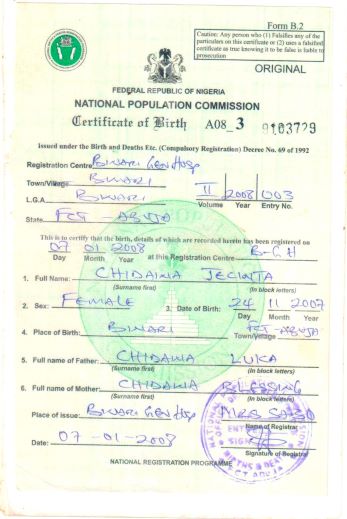 Form B.2
Caution: Any person who (1) Falsifies any of the
particulars on this certificate or (2) uses a falsified
certificate as true knowing it to be false is liable to
prosecution
ORIGINAL
FEDERAL REPUBLIC OF NIGERIA
NATIONAL POPULATION COMMISSION
Certificate of Birth A08_3 9103729
Issued under the Birth and Deaths Etc. (Compulsory Registration) Decree No. 69 of 1992
Registration Centre BWARI GEN HOSP
Town/Village BWARI
L.G.A BWARI II 2008 003
Volume Year Entry No.
State FCT - ABUJA
This is to certify that the birth, details of which are recorded herein has been registered on
07 01 2008 at this Registration Centre B-G-H
Day Month Year
1. Full Name: CHIDAWA JECINTA
(Surname first) (In block letters)
2. Sex: FEMALE 3. Date of Birth: 24 11 2007
Day Month Year
4. Place of Birth: BWARI FCT-ABUJA
Town/Village
5. Full name of Father: CHIDAWA LUKA
(Surname first) (In block letters)
6. Full name of Mother: CHIDAWA BLESSING
(Surname first) (In block letters)
Place of issue: BWARI GEN HOSP MRS
Name of Registrar
Date: 07 -01 -2008
Signature of Registrar
NATIONAL REGISTRATION PROGRAMME